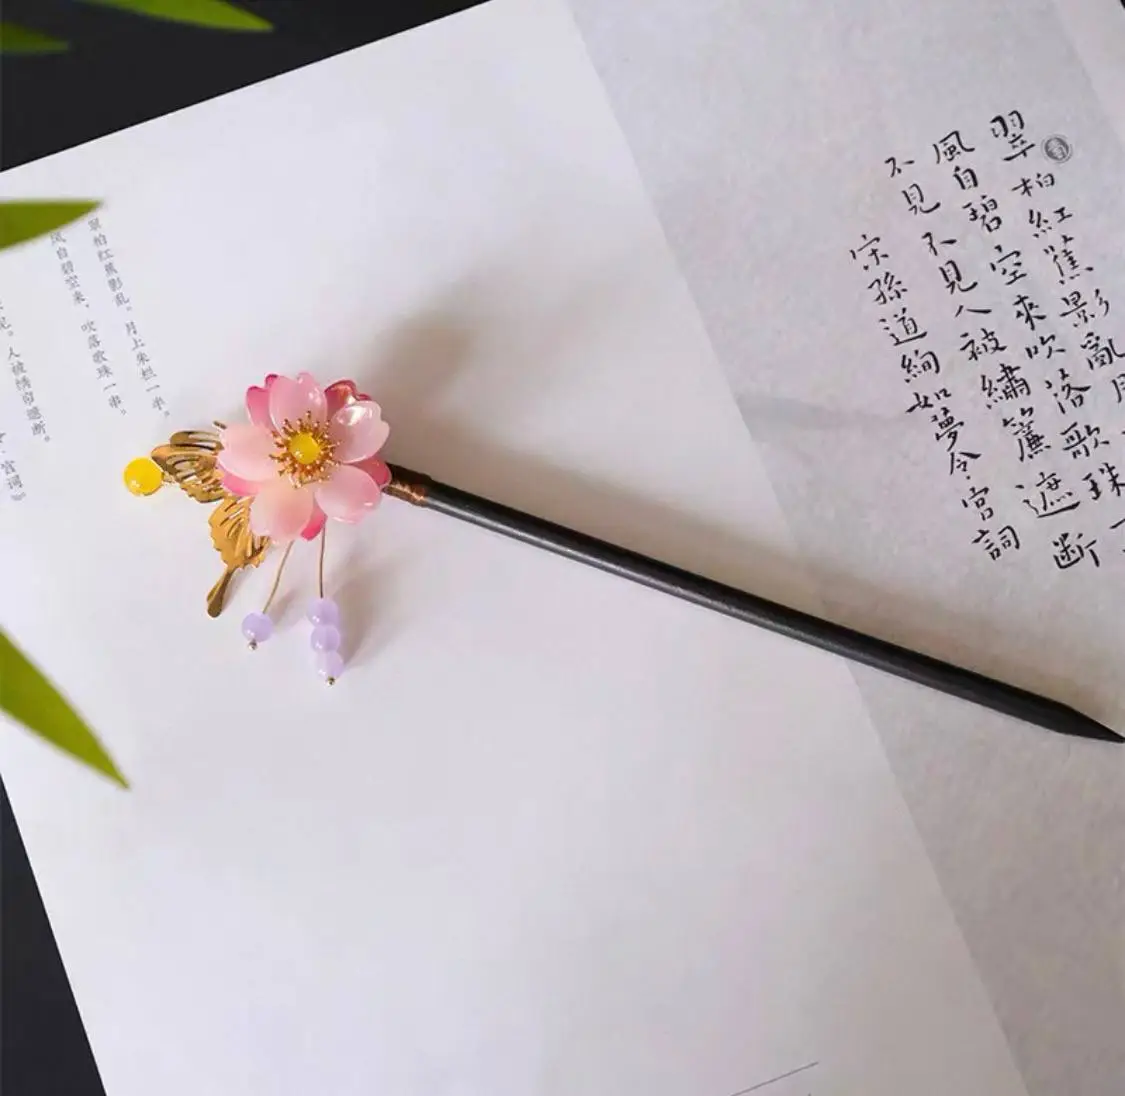 翠柏紅蕉影亂月
風自碧空來吹落歌珠一
不見不見人被繡簾遮斷
宋孫道絢如夢令宮詞
翠柏红蕉影乱。月上朱栏一半。
风自碧空来，吹落歌珠一串。
见。人被绣帘遮断。
宫词》